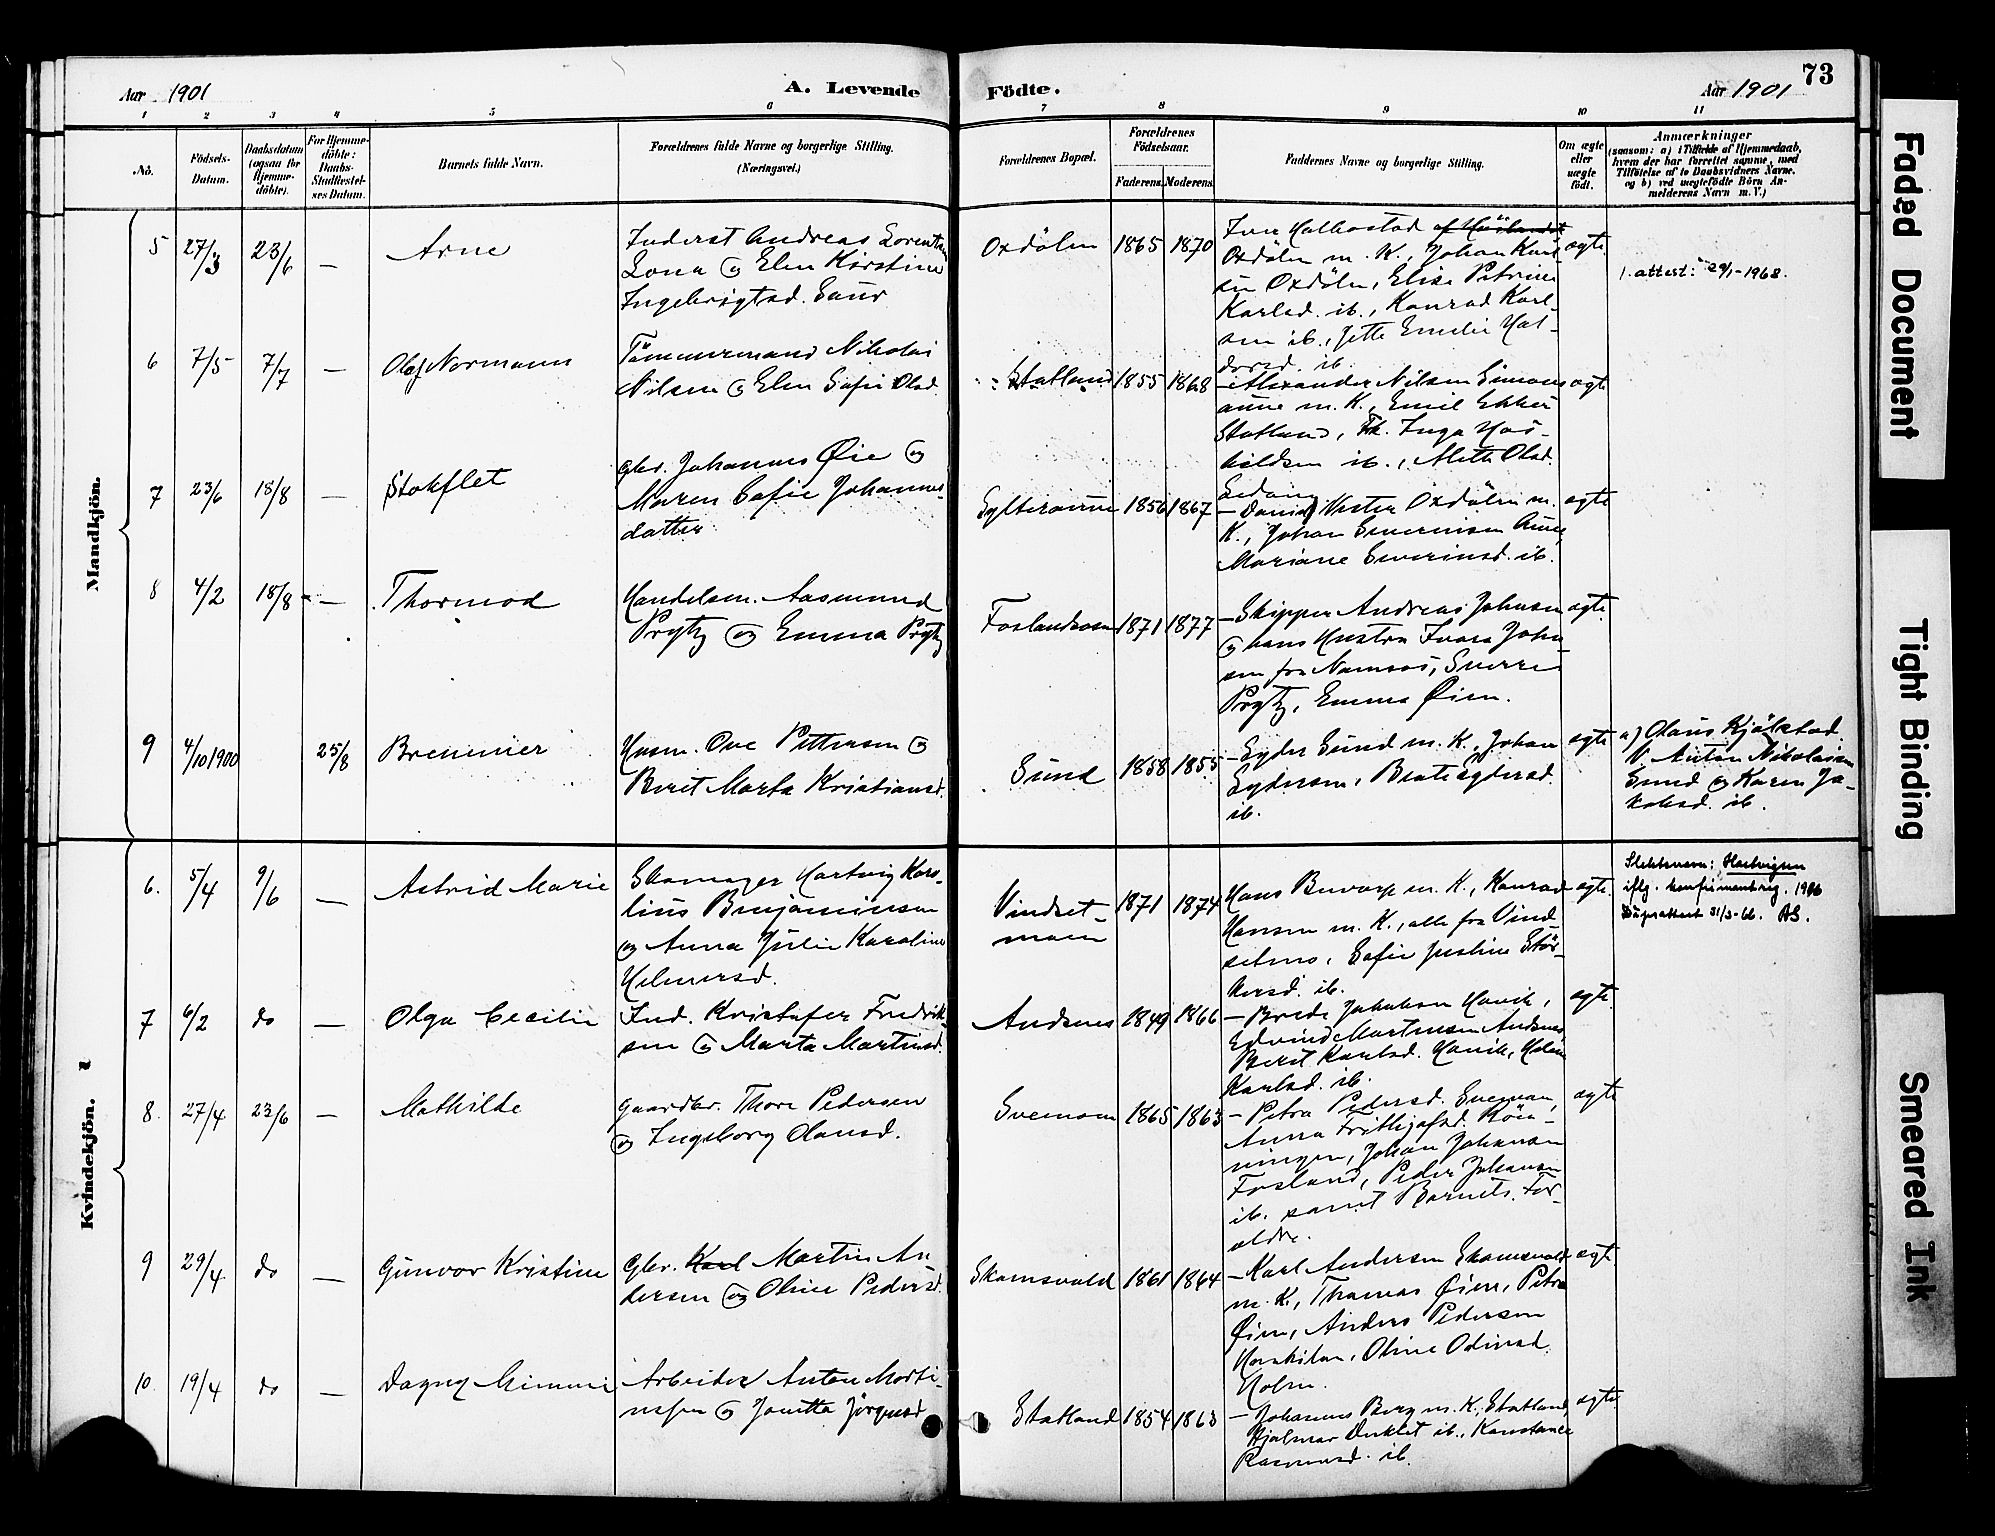 Aar 1901
A. Levende
Födte.
Aar 1901
73
1 2 3 4 5 6 7 8 9 10 11
No.
Födsels-
Datum.
Daabsdatum
(ogsaa for
Hjemme-
döbte).
For Hjemme-
döbte:
Daabs-
Stadfæstel-
ses Datum.
Barnets fulde Navn.
Forældrenes fulde Navne og borgerlige Stilling.
(Næringsvei.)
Forældrenes Bopæl.
Forældrenes
Födselsaar.
Faderens. Moderens.
Faddernes Navne og borgerlige Stilling.
Om ægte
eller
uægte
födt.
Anmærkninger
(saasom: a) i Tilfælde af Hjemmedaab,
hvem der har forrettet samme, med
Tilföielse af to Daabsvidners Navne,
og b) ved uægtefödte Börn An-
melderens Navn m. V.)
Mandkjön.
5
27/3
23/6
—
Arne
Inderst Andreas Lorentsen
Lona og Elen Kirstine
Ingebrigtsd. Saur
Oxdölen
1865
1870
Iver Halbostad
Oxdölen m. K., Johan Kari-
sen Oxdölen, Elise Petrine
Karlsd. ib., Konrad Karl
sen ib., Jette Emelie Hal-
dorsd. ib.
ægte
1. attest: 29/1-1968.
6
7/5
7/7
—
Olaf Normann
Tömmermand Nikolai
Nilsen og Elen Sofie Olsd.
Statland
1855
1868
— Alexander Nilsen Simons
aune m. K., Emil Ekker
Statland, Inga Has-
kildsen ib., Mette Olsd.
ægte
7
23/6
18/8
—
Stokflet
gbr. Johannes Øie og
Maren Sofie Johannes-
datter
Sylteraune
1856
1867
— Daniel Vester Oxdölen m.
K., Johan Severinsen Aune,
Mariane Severinsd. ib.
ægte
8
4/2
18/8
—
Thormod
Handelsm. Aasmund
Prytz og Emma Prytz
Foslandsosen
1871
1877
— Skipper Andreas Johnsen
og hans Hustru Ivara John
sen fra Namsos, Sverre
Prytz, Emma Øien.
ægte
9
4/10 1900
25/8
Bremmer
Husm. Ove Pettersen og
Berit Marta Kristiansd.
Sund
1858
1855
— Eyder Sund m. K., Johan
Eydersen, Beate Eydersd.
ib.
ægte
a) Olaus Kjölstad
V. Anton Nikolaisen
Sund og Karen Ja-
kobsd. ib.
Kvindekjön.
6.
5/4
9/6
—
Astrid Marie
Skomager Hartvig Karo-
lius Benjaminsen
og Anna Julie Karoline
Helmersd.
Vindset-
moen
1871
1874
Hans Buvarp m. K., Konrad
Hansen m. K., alle fra Vind-
setmo, Sofie Justine Stör-
kersd. ib.
ægte.
Slektsnavn: Hartvigsen
iflg. konfirmantreg. 1916
Dåpsattest 31/3-66. AS.
7
6/2
do
—
Olga Cecilie
Ind. Kristofer Fredrik-
sen og Marta Martinsd.
Andsnes
1849
1866
— Brede Jakobsen Havik,
Edvind Martinsen Andsnes
Berit Karlsd. Havik,
Karlsd. ib.
ægte
8.
27/4
23/6
—
Mathilde
Gaardbr. Thore Pedersen
og Ingeborg Olausd.
Svemoen
1865
1863
— Petra Pedersd. Svemoen,
Anna Frithjofsd. Rön-
ningen, Johan Johansen
Fosland, Peder Johansen
ib. samt Barnets For-
ældre.
ægte
9
29/4
do
—
Gunvor Kristine
Gbr. Karl Martin An-
dersen og Oline Pedersd.
Skomsvold
1861
1864
— Karl Andersen Skomsvold
m. K., Thomas Øien, Petra
Øien, Anders Pedersen
Oline Odinsd.
Holm.
ægte
10.
19/4
do
—
Dagny Mimmi
Arbeider Anton Morti-
nsen og Janetta Jörgensd
Statland
1854
1863
— Johannes Berg m. K., Statland,
Hjalmar Duklet ib., Konstanse
Rasmusd. ib.
ægte
Faded Document
Tight Binding
Smeared Ink